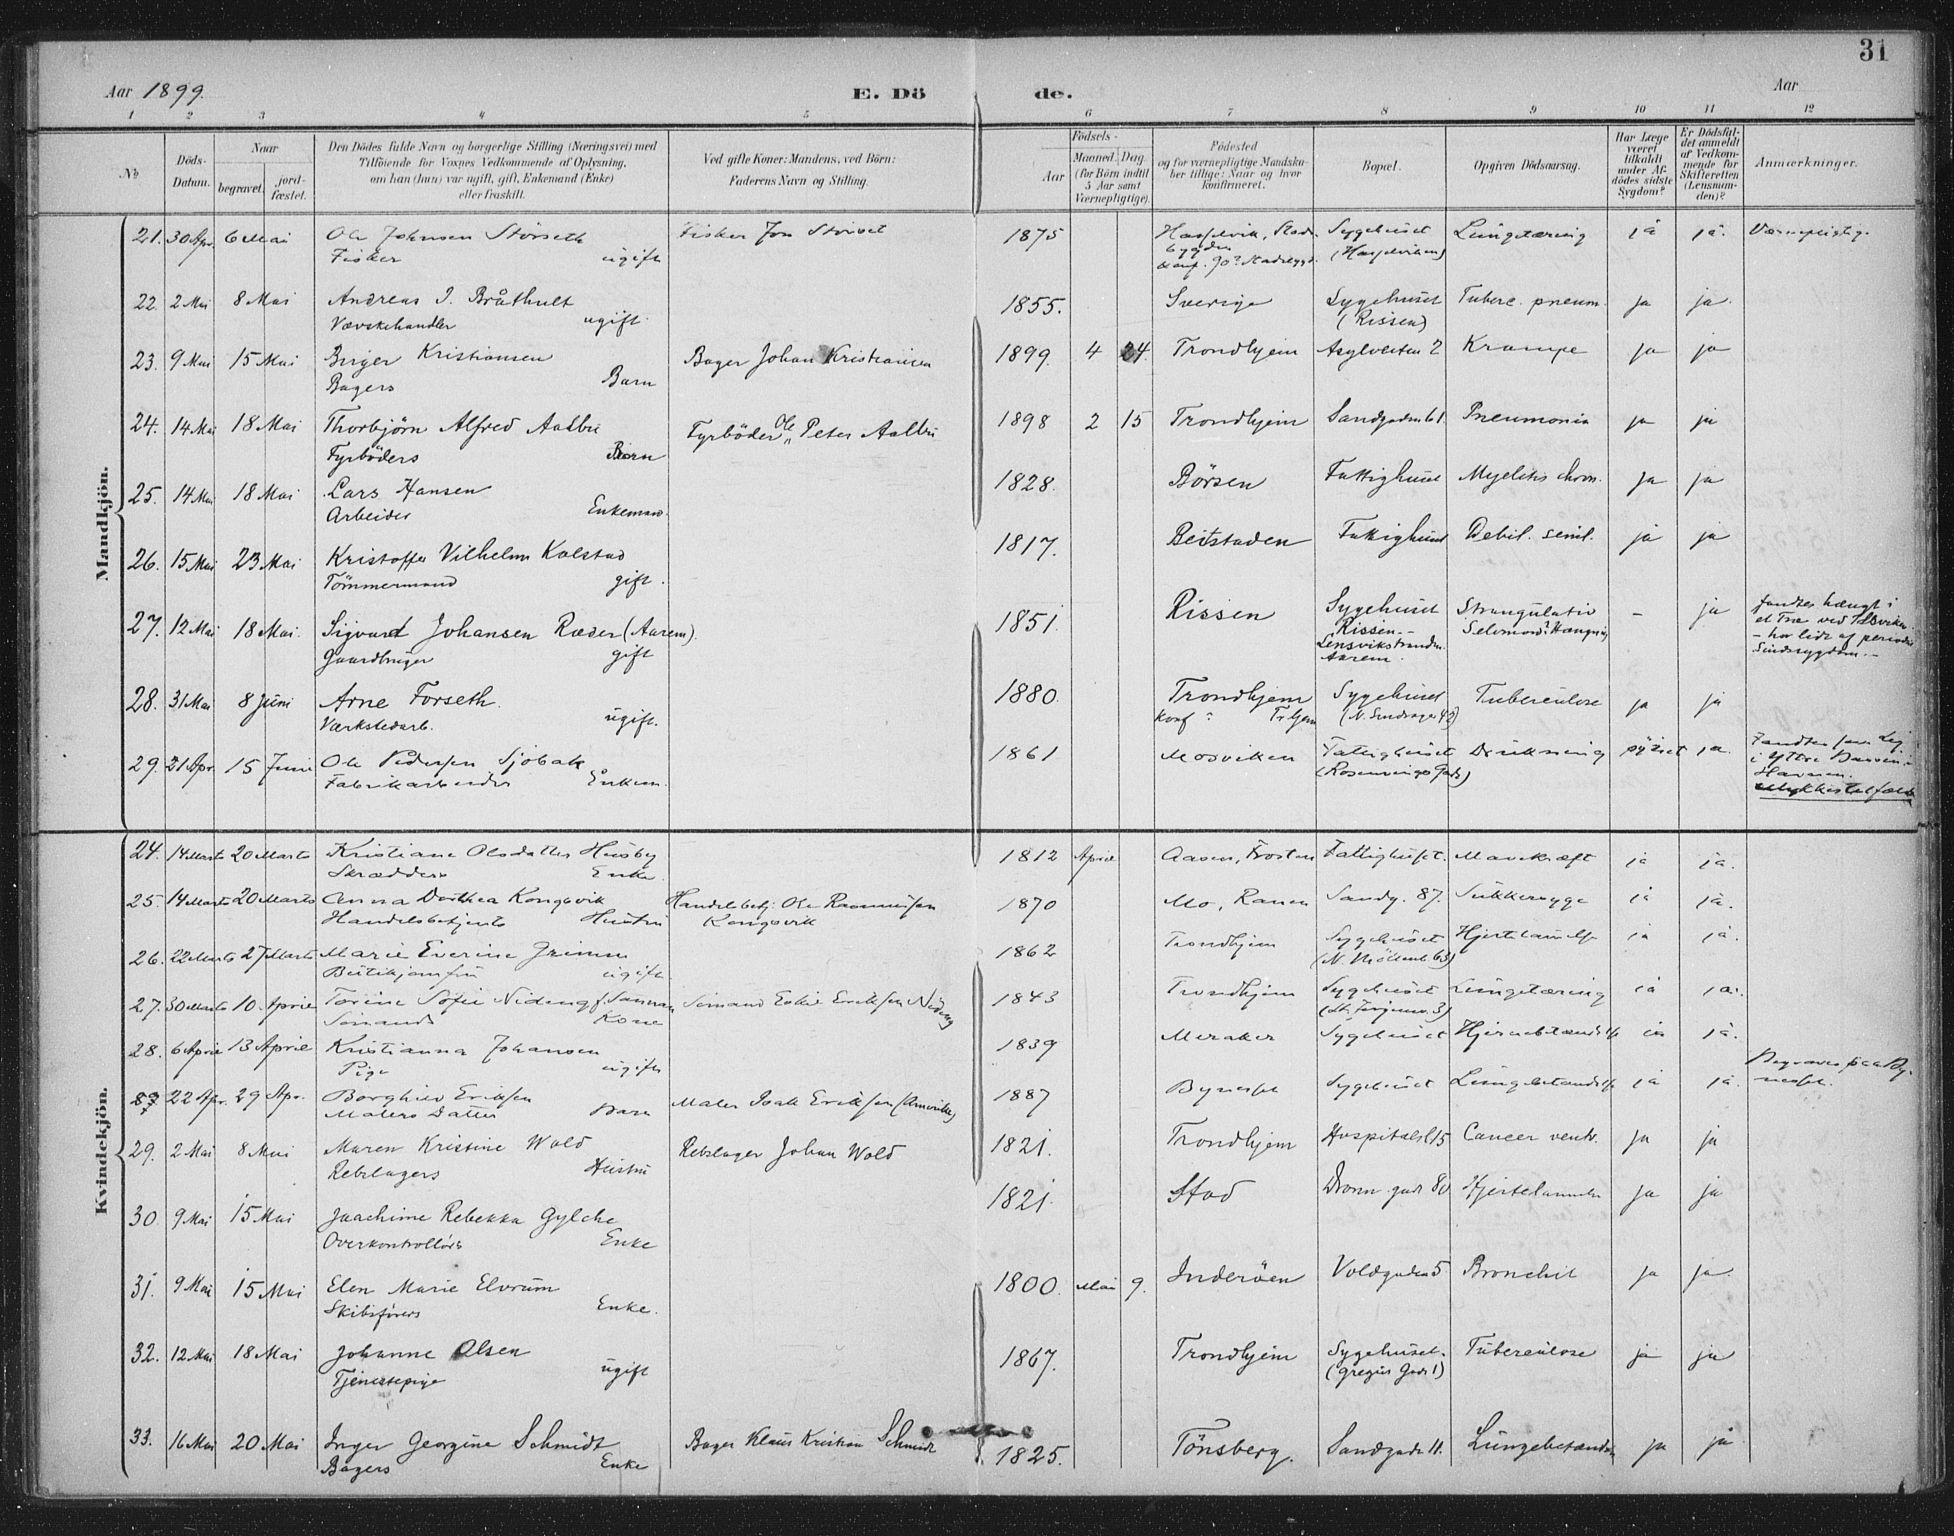 31
Aar 1899.
E. Dö de.
Aar
1 2 3 4 5 6 7 8 9 10 11 12
No
Döds-Datum.
Naar
begravet.
jord-fæstet.
Den Dödes fulde Navn og borgerlige Stilling (Næringsvei) med
Tilföiende for Voxnes Vedkommende af Oplysning,
om han (hun) var ugift, gift, Enkemand (Enke)
eller fraskilt.
Ved gifte Koner: Mandens, ved Börn:
Faderens Navn og Stilling.
Födsels-
Aar
Maaned. Dag.
(for Börn indtil
5 Aar samt
Værnepligtige).
Födested
og for værnepligtige Mandska-
ber tillige: Naar og hvor
konfirmeret.
Bopæl.
Opgiven Dödsaarsag.
Har Læge
været
tilkaldt
under Af-
dödes sidste
Sygdom?
Er Dödsfal-
det anmeldt
af Vedkom-
mende for
Skifteretten
(Lensman-
den)?
Anmærkninger.
Mandkjön.
21. 30 Apr. 6 Mai Ole Johnsen Störseth Fisker Jon 1875 Sygehuset Lungetæring ja ja. Værnepligtig
Fisker ugift bygden (Hasselviken)
22. 2 Mai 8 Mai Andreas J. Bråthult 1855. Sverige Sygehuset Tuberc. pneum. ja ja.
Vævskehandler ugift. (Rissen)
23. 9 Mai 15 Mai Birger Kristiansen Bager Johan Kristiansen 1899. 4 24. Trondhjem Asylveiten 2 Krampe ja ja
Bagers Barn
24. 14 Mai 18 Mai Thorbjörn Alfred Aalbu Fyrböder Ole Peter Aalbu 1898 2 15 Trondhjem Sandgaden 61. Pneumonia ja ja
Fyrböders Barn
25. 14 Mai 18 Mai Lars Hansen 1828. Börsen Fattighuset Myelitis chron. ja ja
Arbeider Enkemand.
26. 15 Mai 23 Mai Kristoffer Vilhelm Kolstad 1817. Beitstaden Fattighuset Debil. senil. ja ja
Tömmermand gift.
27. 12 Mai 18 Mai. Sigvard Johansen Ræder (Aarem). 1851. Rissen Sygehuset Strangulatio – ja fandtes hængt i
Gaardbruger gift Rissen.- Selvmord? Hængning et Træ ved
Lensvikstranden - har lidt af periodisk
Aarem. Sindssygdom.-
28. 31 Mai 8 Juni Arne Forseth. 1880. Trondhjem Sygehuset Tuberculose ja ja
Værkstedarb. ugift. Konf: Tr.hjem
29. 21 Apr. 15 Juni Ole Pedersen Sjöbak 1861 Mosviken Fattighuset Drukning ja. Fandtes som Lig
Fabrikarbeider Enkem. i Yttre
Havnen.
Kvindekjön.
24. 14 Marts 20 Marts Kristiane Olsdatter Husby 1812 April Aasen, Frosten Fattighuset. Mavekræft ja ja.
Skrædders Enke.
25. 14 Marts 20 Marts Anna Dorthea Kongsvik Handelsbetj: Ole Rasmussen 1870 Mo, Ranen Sandg. 87. Sukkersyge ja ja.
Handelsbetjents Hustru Kongsvik
26. 22 Marts 27 Marts Marie Everine Grimm 1862 Trondhjem Sygehuset Hjertelamelse ja ja.
Butikjomfru ugift (N. Möllenb 63)
27. 30 Marts 10. April Torine Sofie Nideng f. Sömand Erik Eriksen Nideng 1843 Trondhjem Sygehuset Lungetæring ja ja.
Sömands Kone
28. 6 April 13 April Kristianna Johansen 1839 Meraker Sygehuset Hjernebetændelse ja ja.
Pige ugift
22 Apr. 29 Apr. Borghild Eriksen Maler Isak Eriksen (Amerika) 1887 Bynesset Sygehuset Lungebetændelse ja ja. Begraves paa By-
Malers Datter Barn nesset.
29. 2 Mai 8 Mai Maren Kristine Wold Rebslager Johan Wold 1821. Trondhjem Hospitalsl. 15 Cancer ventr. ja ja
Rebslagers Hustru
30. 9 Mai 15 Mai Joachime Rebekka Gylche 1821. Stod Dronn. gade 80 Hjertelammelse ja ja
Overkontrollörs Enke
31. 9 Mai 15 Mai Elen Marie Elvrum 1800. Mai 9. Inderöen Voldgaden 5. Bronchit ja ja.
Skibsförers Enke.
32. 12 Mai 18 Mai Johanne Olsen 1867. Trondhjem Sygehuset. Tuberculose ja ja
Tjenestepige ugift (Gregus Gade 1)
33. 16 Mai 20 Mai Inger Georgine Schmidt Bager Klaus Kristian Schmidt 1825. Tönsberg. Sandgade 11. Lungebetændelse ja ja
Bagers Enke